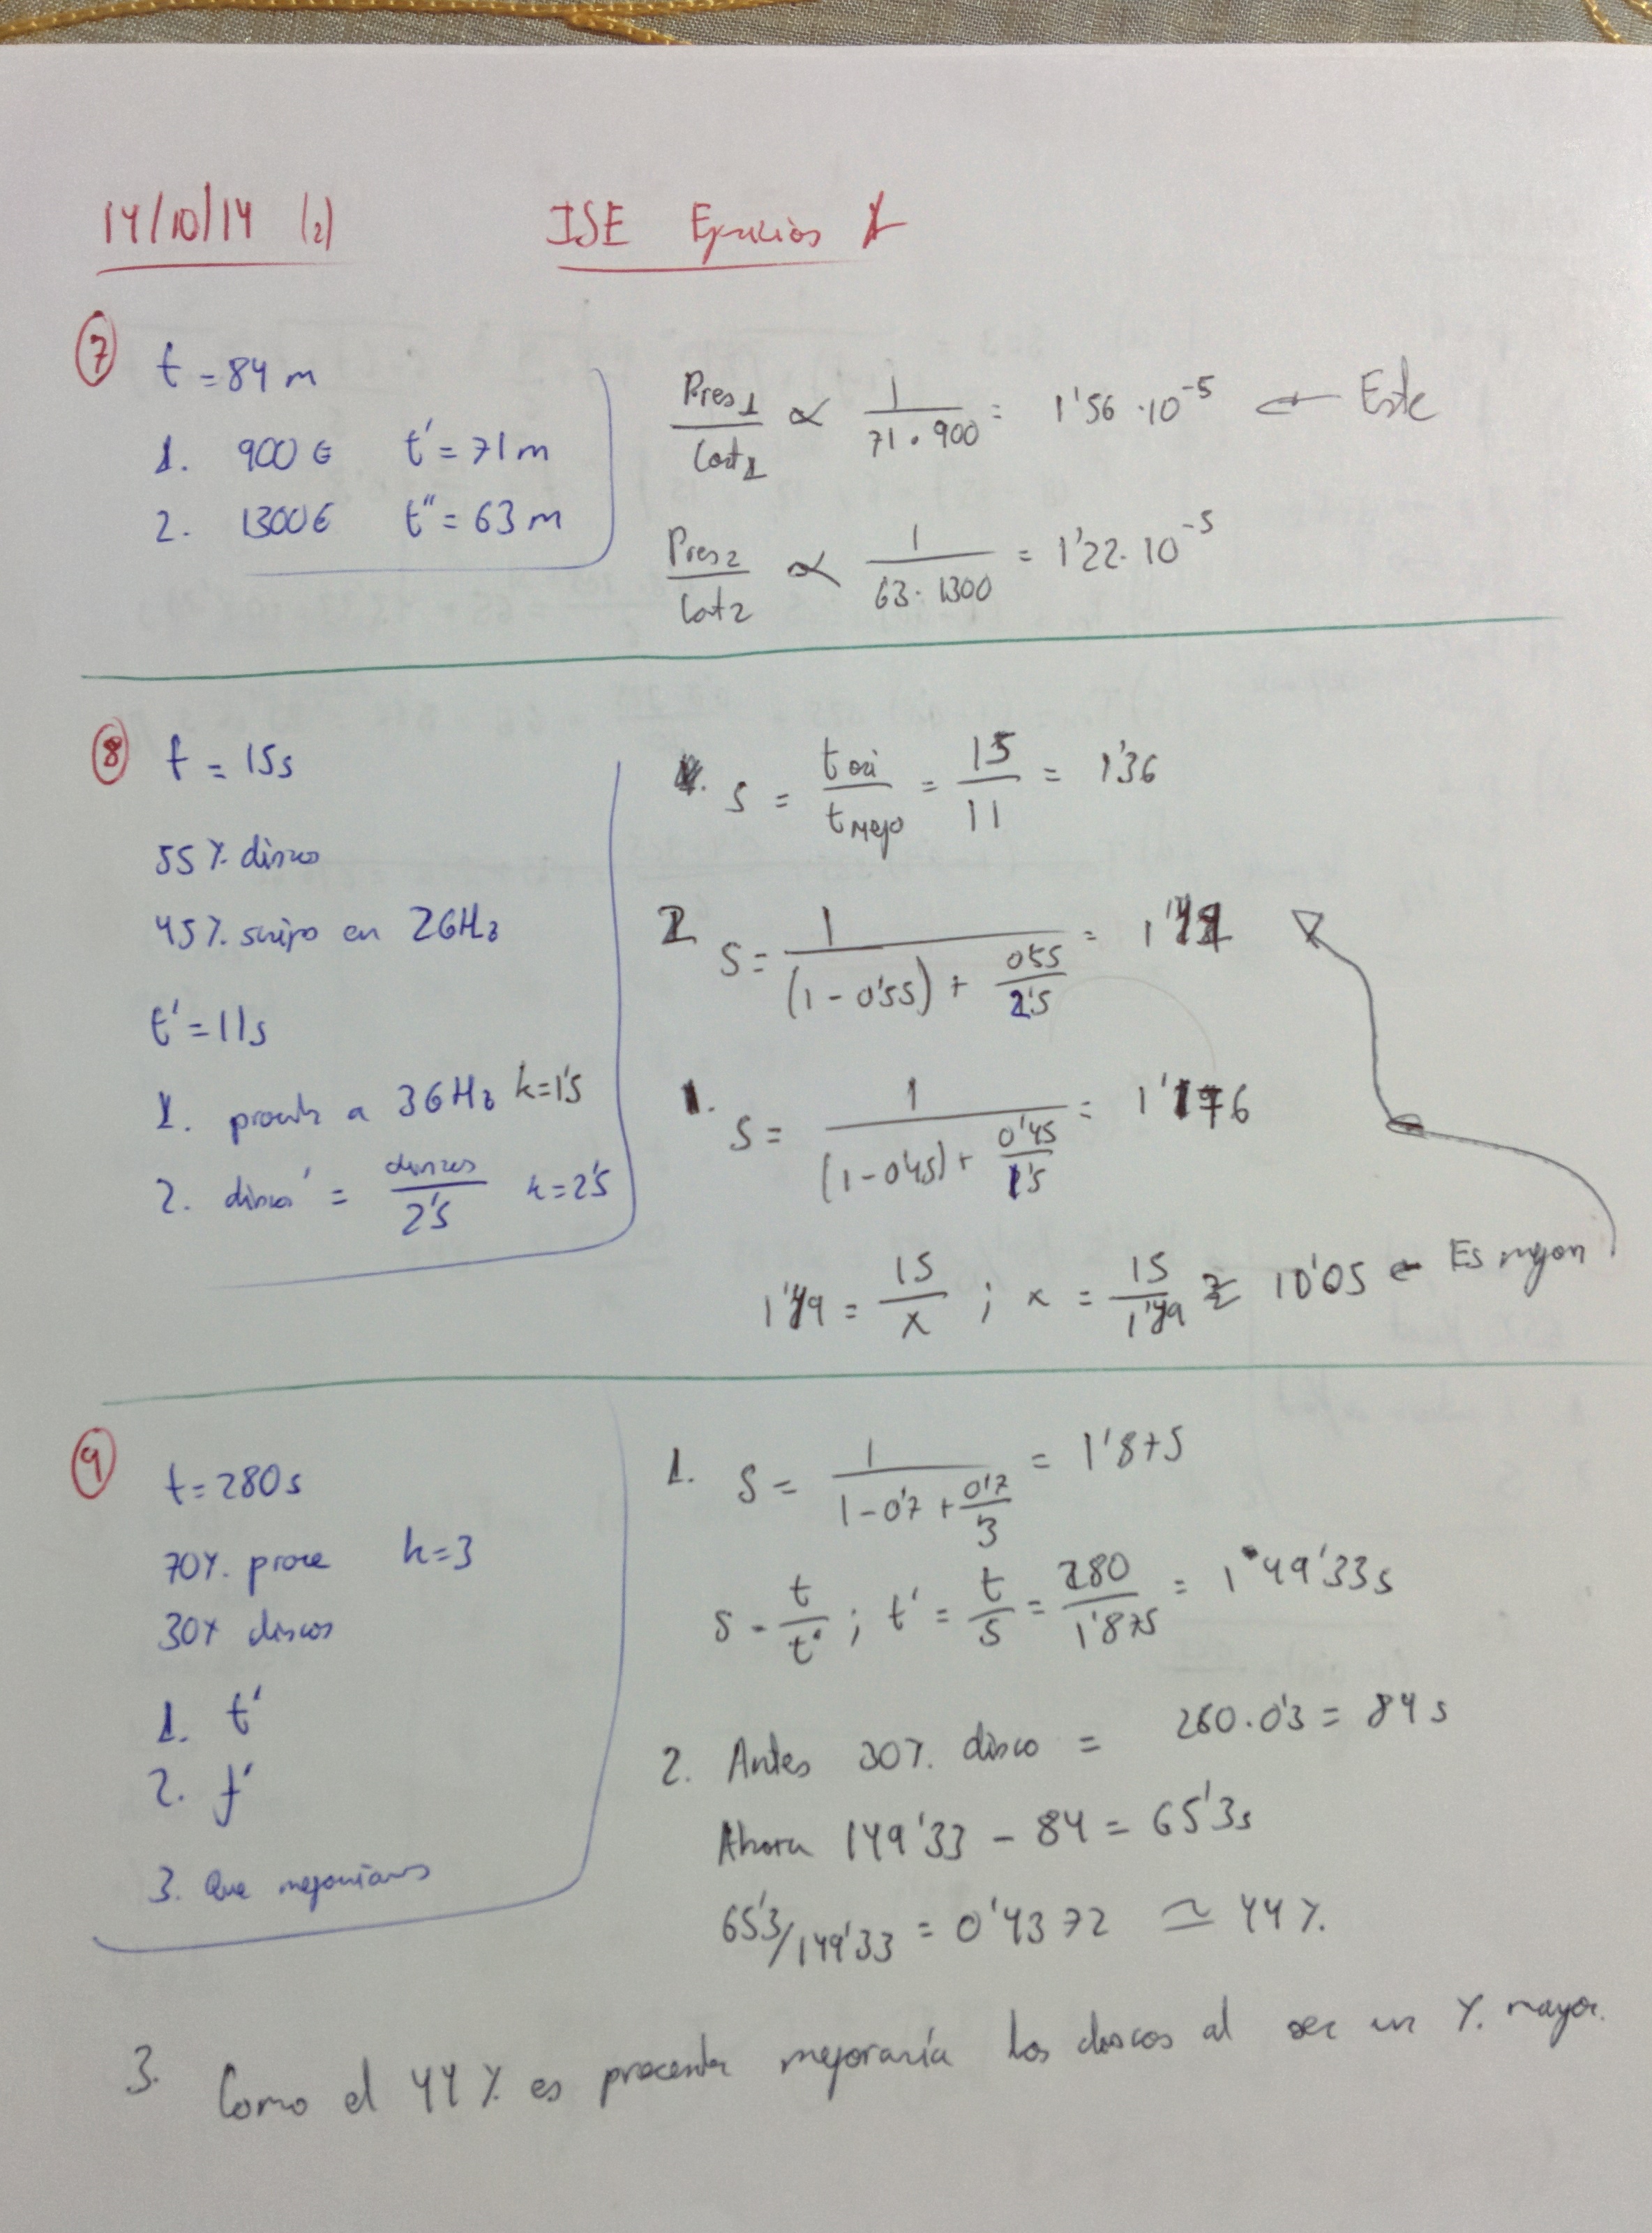 14/10/14 (2) ISE Ejercicios 1
7
t = 84 m
1. 900 € t' = 71 m
2. 1300 € t'' = 63 m
Pres1/Cost1 ∝ 1/(71 · 900) = 1'56 · 10^-5 ← Este
Pres2/Cost2 ∝ 1/(63 · 1300) = 1'22 · 10^-5
8
t = 15s
55 % discos
45 % en 2GHz
t' = 11s
1. a 3GHz k=1'5
2. disco' = discos/2'5 k=2'5
S = t ori/t mejo = 15/11 = 1'36
2 S = 1/((1-0'55) + 0'55/2'5) =
1. S = 1/((1-0'45) + 0'45/1'5) = 1'176
1'49 = 15/x ; x = 15/1'49 ≅ 10'05 ← Es mejor
9
t = 280s
70%. proce k=3
30% discos
1. t'
2. f'
3. Que mejoriamos
1. S = 1/(1-0'7 + 0'7/3) = 1'875
S = t/t' ; t' = t/S = 280/1'875 = 149'33s
2. Antes 30%. disco = 280·0'3 = 84 s
Ahora 149'33 - 84 = 65'3s
65'3/149'33 = 0'4372 ≃ 44 %.
3. Como el 44 % es procesador mejoraría los discos al ser un %. mayor.